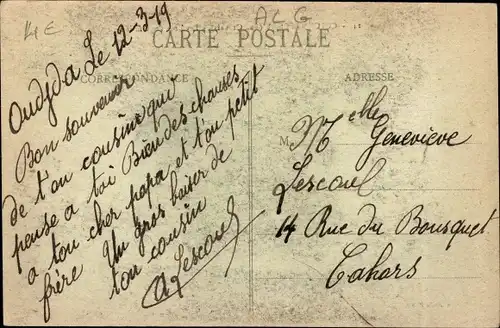 14E
ALG
CARTE POSTALE
CORRESPONDANCE
ADRESSE
Oudjda Le 12-3-19
Bon souvenir
de ton cousin qui
pense a toi Bien des chauses
a ton cher papa et t'on petit
frère Un gros baiser de
ton cousin
A Lescoul
M
Melle Geneviève
Lescoul
14 Rue du Bousquet
Cahors